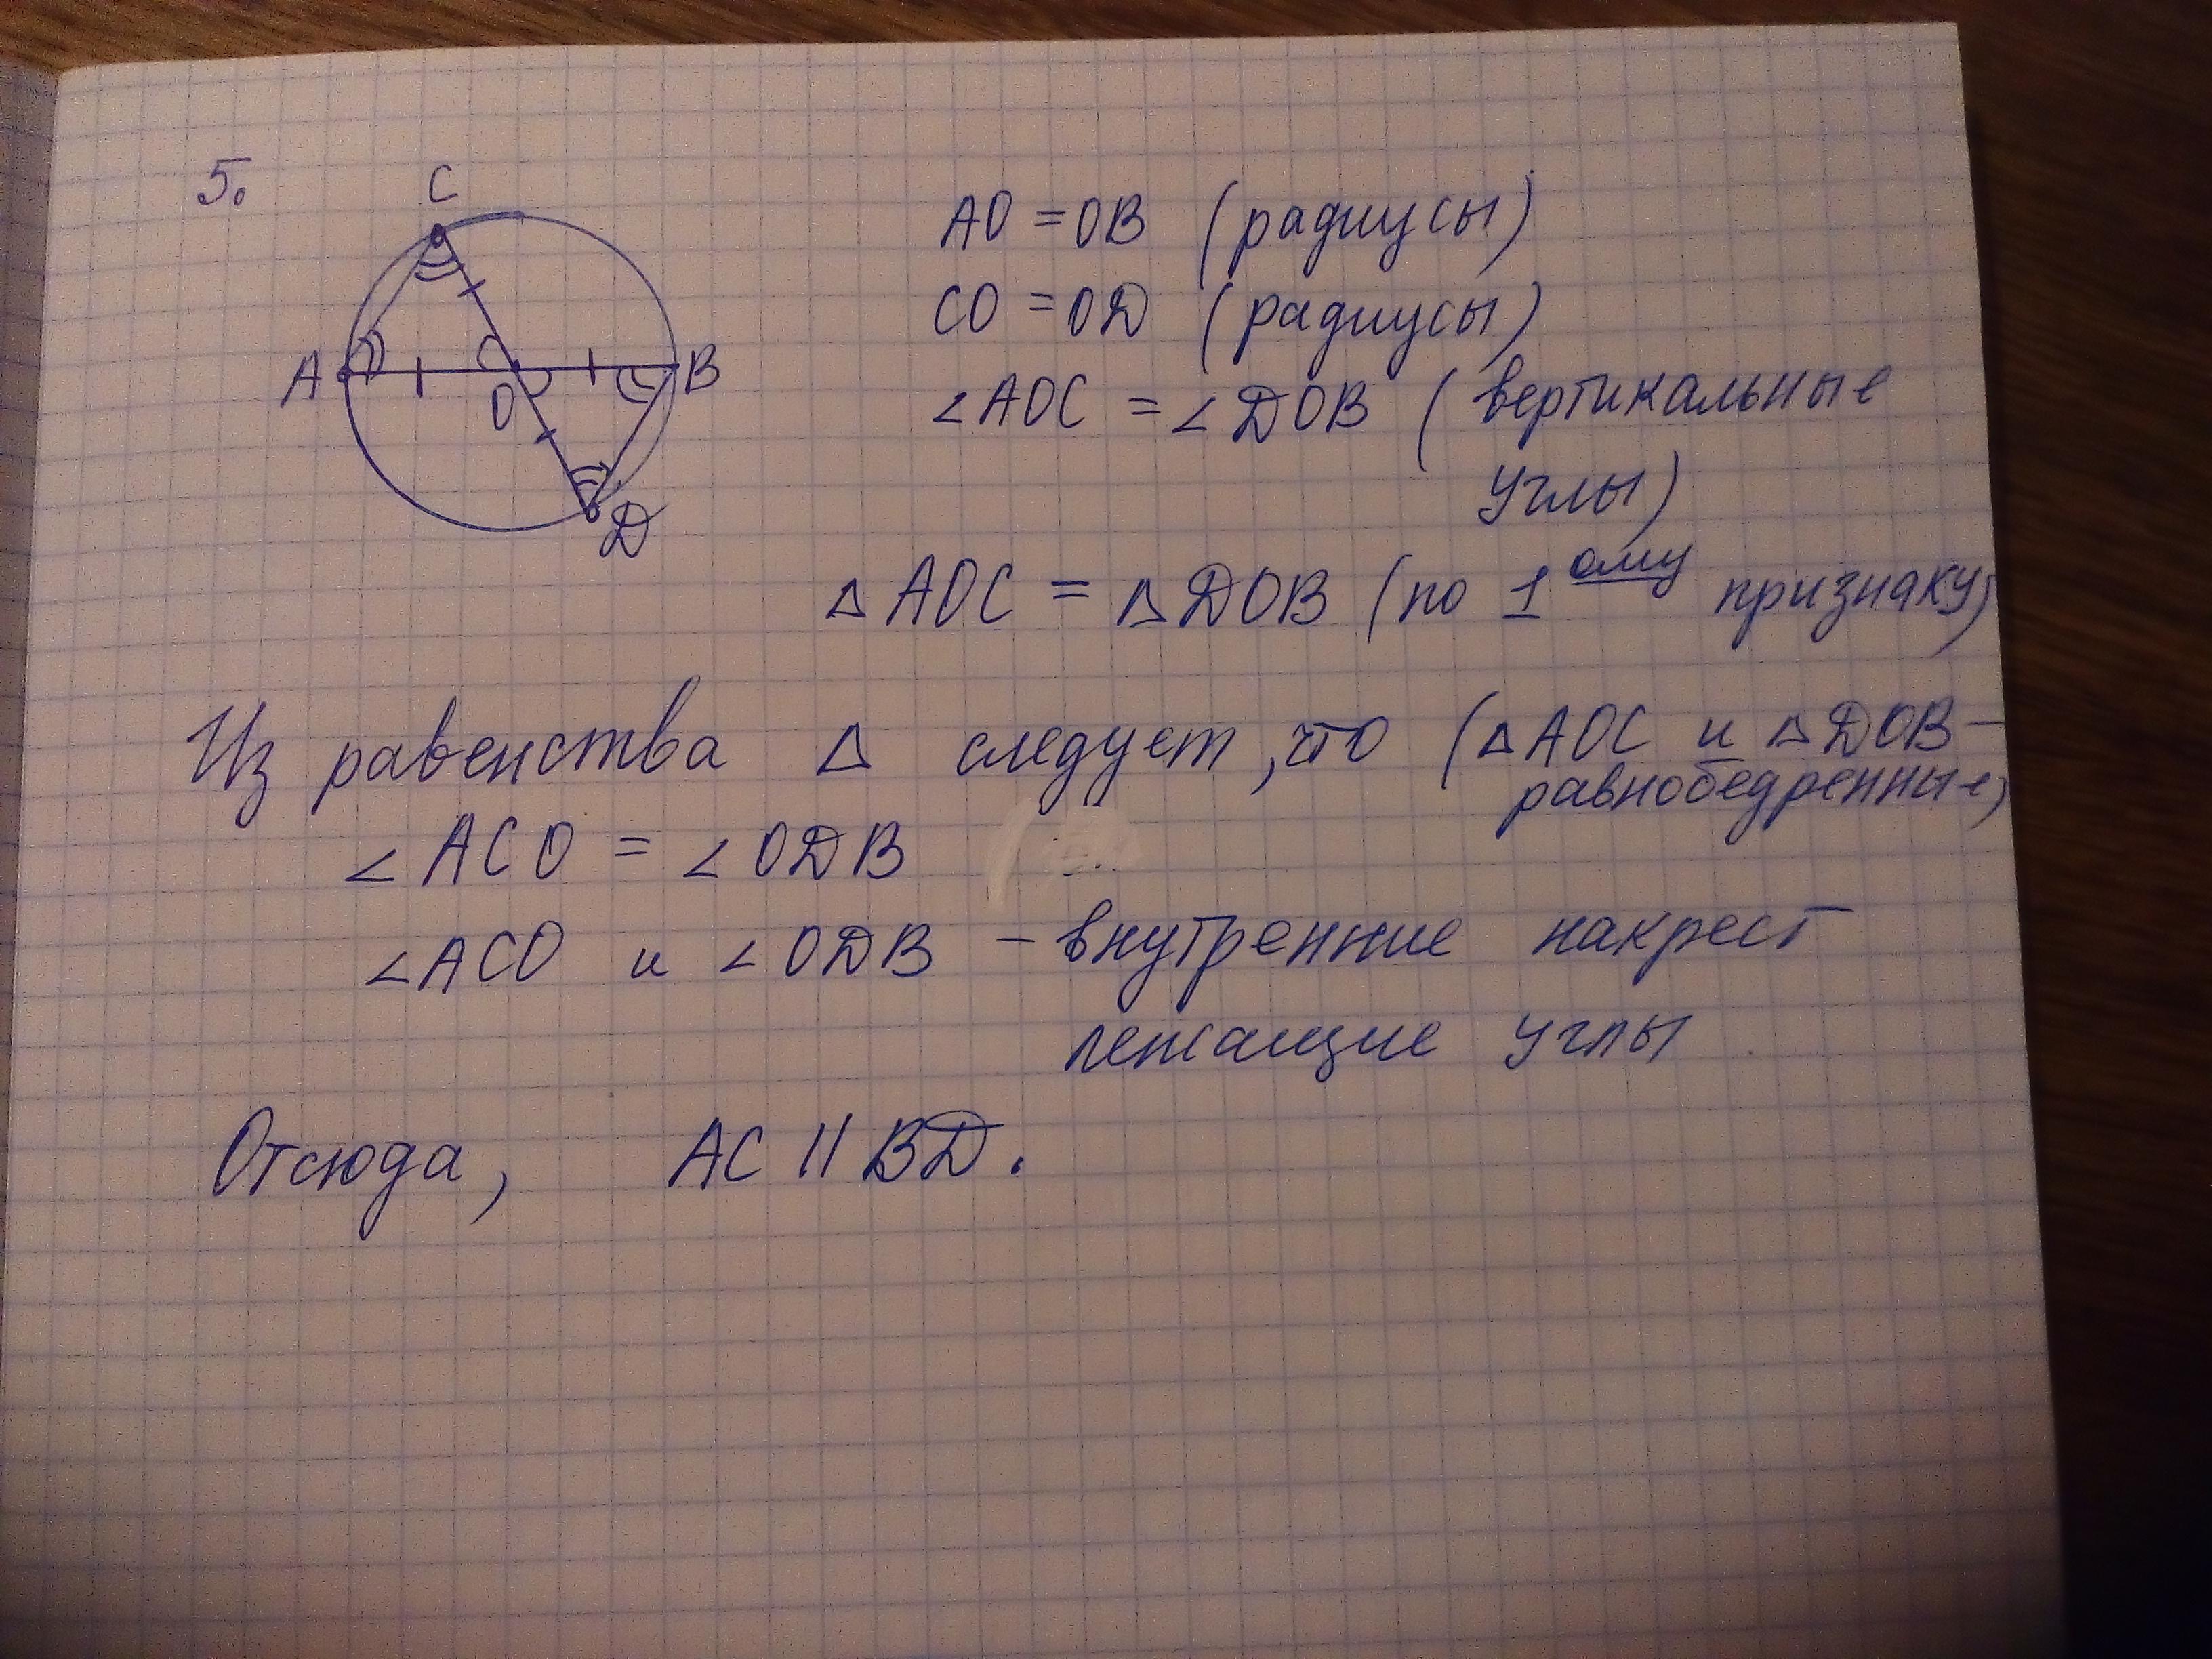 5.
C
A
B
O
D
AO = OB (радиусы)
CO = OD (радиусы)
∠AOC = ∠DOB (вертикальные
углы)
△AOC = △DOB (по 1ому признаку)
Из равенства △ следует, что (△AOC и △DOB –
равнобедренные)
∠ACO = ∠ODB
∠ACO и ∠ODB – внутренние накрест
лежащие углы
Отсюда, AC || BD.